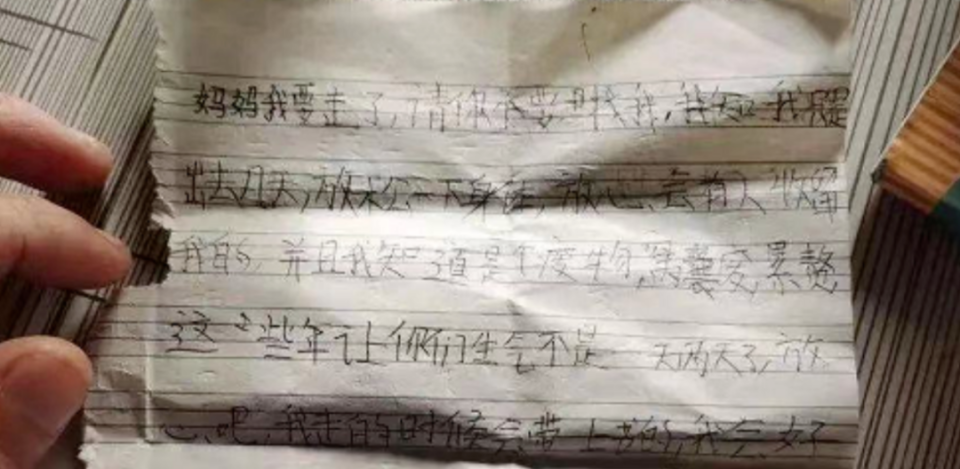 妈妈我要走了,请你不要找我,我知 我只是
出去几天,放松一下身 ,放心,会有人收留
我的,并且我知道是个废物, 要爱
这些年让你们生气不是一天两天了,放
心吧,我走的时候会带上书的,我会好